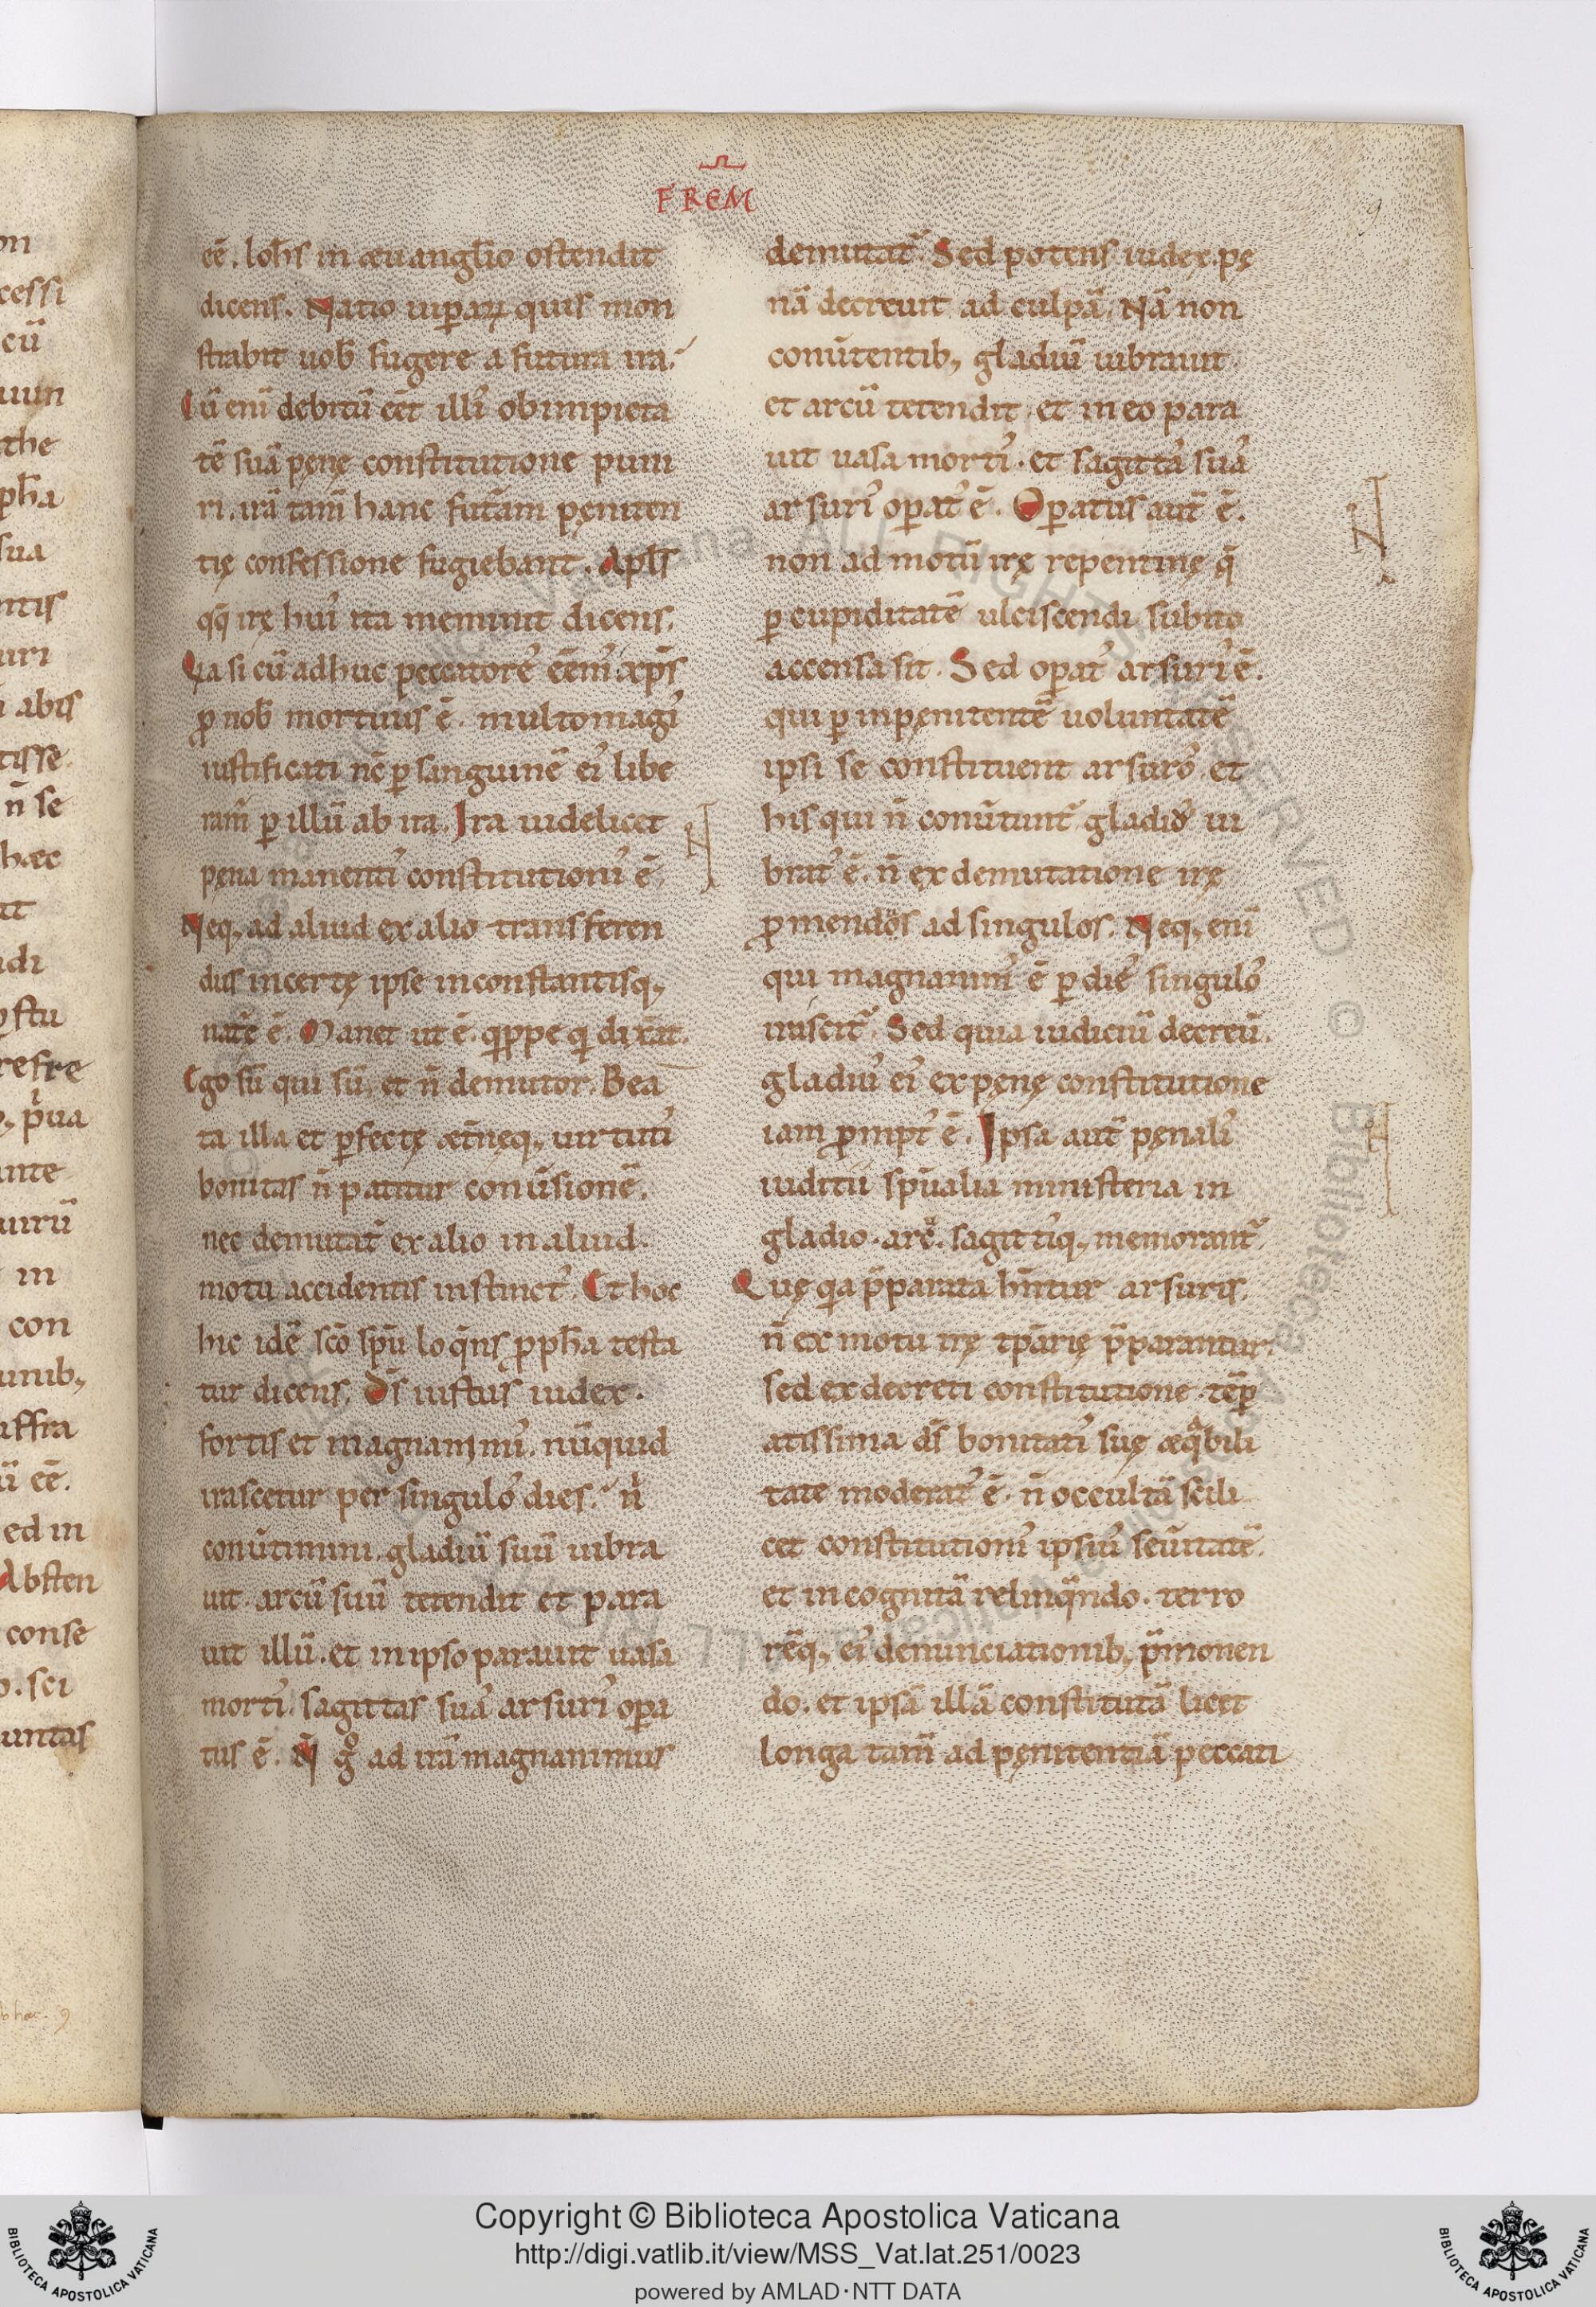 FREM
9
eē. Ioh̄s in æuangl̄io ostendit
dicens. Natio uiꝑaꝝ quis mon
strabit uob̄ fugere a futura ira.
Cū eni debitū eēt illi᾽ ob impieta
tē suā pęnę constitutione puni
ri. irā tam̄ hanc fut̄am pęniten
tię confessione fugiebant. Apl̄s
qq̄ irę hui᾽ ita meminit dicens.
Qa si cū adhuc peccatore᾽ eēm᾽ xp̄s
ꝓ nob̄ mortuus ē. multomagi᾽
iustificati nc̄ ꝑ sanguinē ei᾽ libe
ram̄ ꝑ illū ab ira. Ira uidelicet
pęna manenti᾽ constitutioni᾽ ē.
Neq; ad aliud ex alio transferen
dus incertę ipse inconstantisq;
nat̄ę ē. Manet ut ē. qippe qi dix̄at.
Ego sū qui sū. et n̄ demutor. Bea
ta illa et ꝑfectę æt̄nęq; uirtuti᾽
bonitas n̄ patitur conūsionē.
nec demutat̄ ex alio in aliud.
motu accidentis instinct᾽. Et hoc
hic idē sc̄o sp̄u loq̄ns ꝓph̄a testa
tur dicens. Ds̄ iustus iudex.
fortis et magnanimi᾽. nūquid
irascetur per singulo᾽ dies. ni
conūtimini. gladiū suū uibra
uit. arcū suū tetendit et para
uit illū. et in ipso parauit uasa
morti᾽. sagittas sua᾽ arsuri᾽ oꝑa
tus ē. N̄ gͦ ad irā magnanimus
demutat̄. Sed potens iudex. pę
nā decreuit ad culpā. Nā non
conūtentib; gladiū uibrauit.
et arcū tetendit. et in eo para
uit uasa morti᾽. et sagitta᾽ sua᾽
arsuri᾽ oꝑat᾽ ē. Oꝑatus aut̄ ē.
non ad motū irę repentinę q̄
ꝑ cupiditatē ulciscendi subito
accensa sit. Sed oꝑat᾽ arsuri᾽ ē.
qui ꝑ inpęnitentē uoluntatē
ipsi se constituent arsuro᾽. et
his qui n̄ conūtunt̄ gladi᾽ ui
brat᾽ ē. n̄ ex demutatione irę
ꝓmendos ad singulos. Neq; eni
qui magnanimi᾽ ē ꝑ die᾽ singulo᾽
irascit̄. Sed quia iudiciū decreū.
gladiu᾽ ei᾽ ex pęnę constitutione
iam ꝓmpt᾽ ē. Ipsa aut̄ pęnali᾽
iuditii sp̄ualia ministeria in
gladio. arc̄. sagittiq; memorant̄.
Quę qa p̄parata hn̄tur arsuris.
n̄ ex motu irę tp̄arię p̄parantur.
sed ex decreti constitutione. tēꝑ
atissima ds̄ bonitati᾽ suę æqabili
tate moderat᾽ ē. n̄ occultā scili
cet constitutioni᾽ ipsiu᾽ seūitatē.
et incognitā relinq̄ndo. terro
rēq; ei᾽ denunciationib; p̄monen
do. et ipsā illā constitutā licet
longa tam̄ ad pęnitentiā peccati
Copyright © Biblioteca Apostolica Vaticana
http://digi.vatlib.it/view/MSS_Vat.lat.251/0023
powered by AMLAD·NTT DATA
BIBLIOTECA APOSTOLICA VATICANA
BIBLIOTECA APOSTOLICA VATICANA